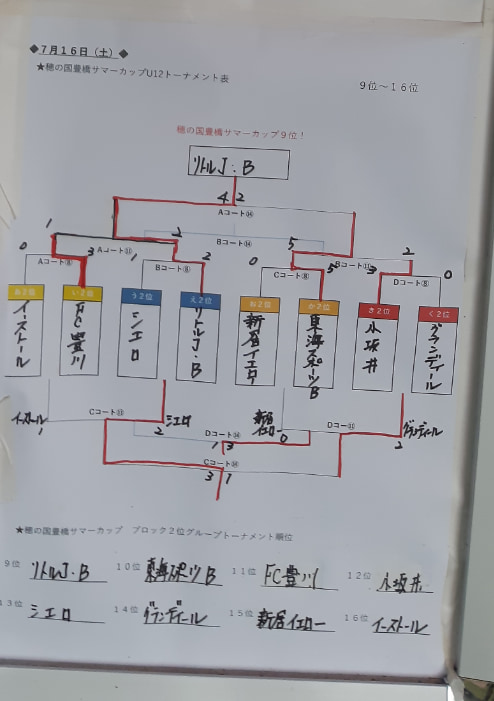 ◆7月16日（土）◆
★穂の国豊橋サマーカップU12トーナメント表
9位～16位
穂の国豊橋サマーカップ9位！
リトルJ・B
4 2
Aコート⑭
1 2 5 2
Aコート⑪ Bコート⑭ Bコート⑪
0 3 1 2 0 5 3 0
Aコート⑧ Bコート⑧ Cコート⑧ Dコート⑧
あ2位 い2位 う2位 え2位 お2位 か2位 き2位 く2位
イーストール FC豊川 シエロ リトルJ・B 新居イエロー 東海スポーツB 小坂井 グランディール
イーストール Cコート⑪ シエロ 新居イエロー Dコート⑪ グランディール
1 2 0 2
Dコート⑭
1 3
Cコート⑭
3 1
★穂の国豊橋サマーカップ ブロック2位グループトーナメント順位
9位 リトルJ・B 10位 東海スポーツB 11位 FC豊川 12位 小坂井
13位 シエロ 14位 グランディール 15位 新居イエロー 16位 イーストール